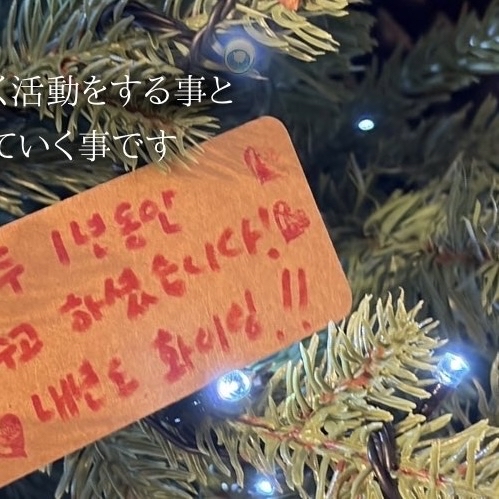 く活動をする事と
ていく事です
두 1년동안
수고 하셨습니다!
새년도 화이팅!!